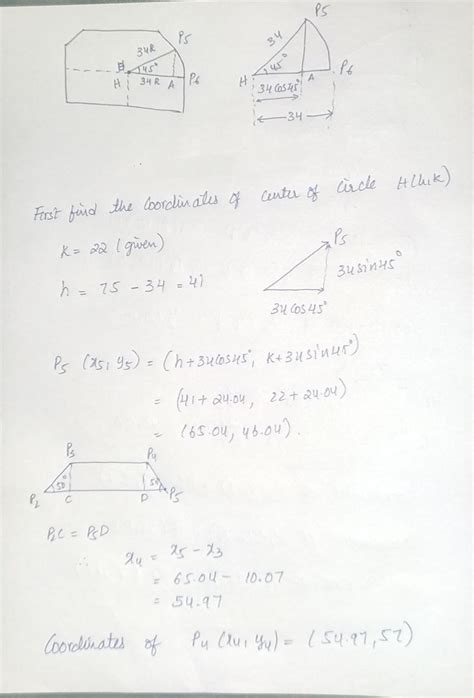 P5
34R
45°
H
34R
A
P6
P5
34
45°
H
A
P6
34cos45°
34
First find the Coordinates of center of circle H(h,k)
K = 22 (given)
h = 75 - 34 = 41
P5
34sin45°
34cos45°
P5 (x5, y5) = (h+34cos45°, K+34sin45°)
= (41+24.04, 22+24.04)
= (65.04, 46.04).
P3
P4
50°
50
P2
C
D
P5
P2C = P5D
∴ x4 = x5 - x3
= 65.04 - 10.07
= 54.97
Coordinates of P4 (x4, y4) = (54.97, 57)